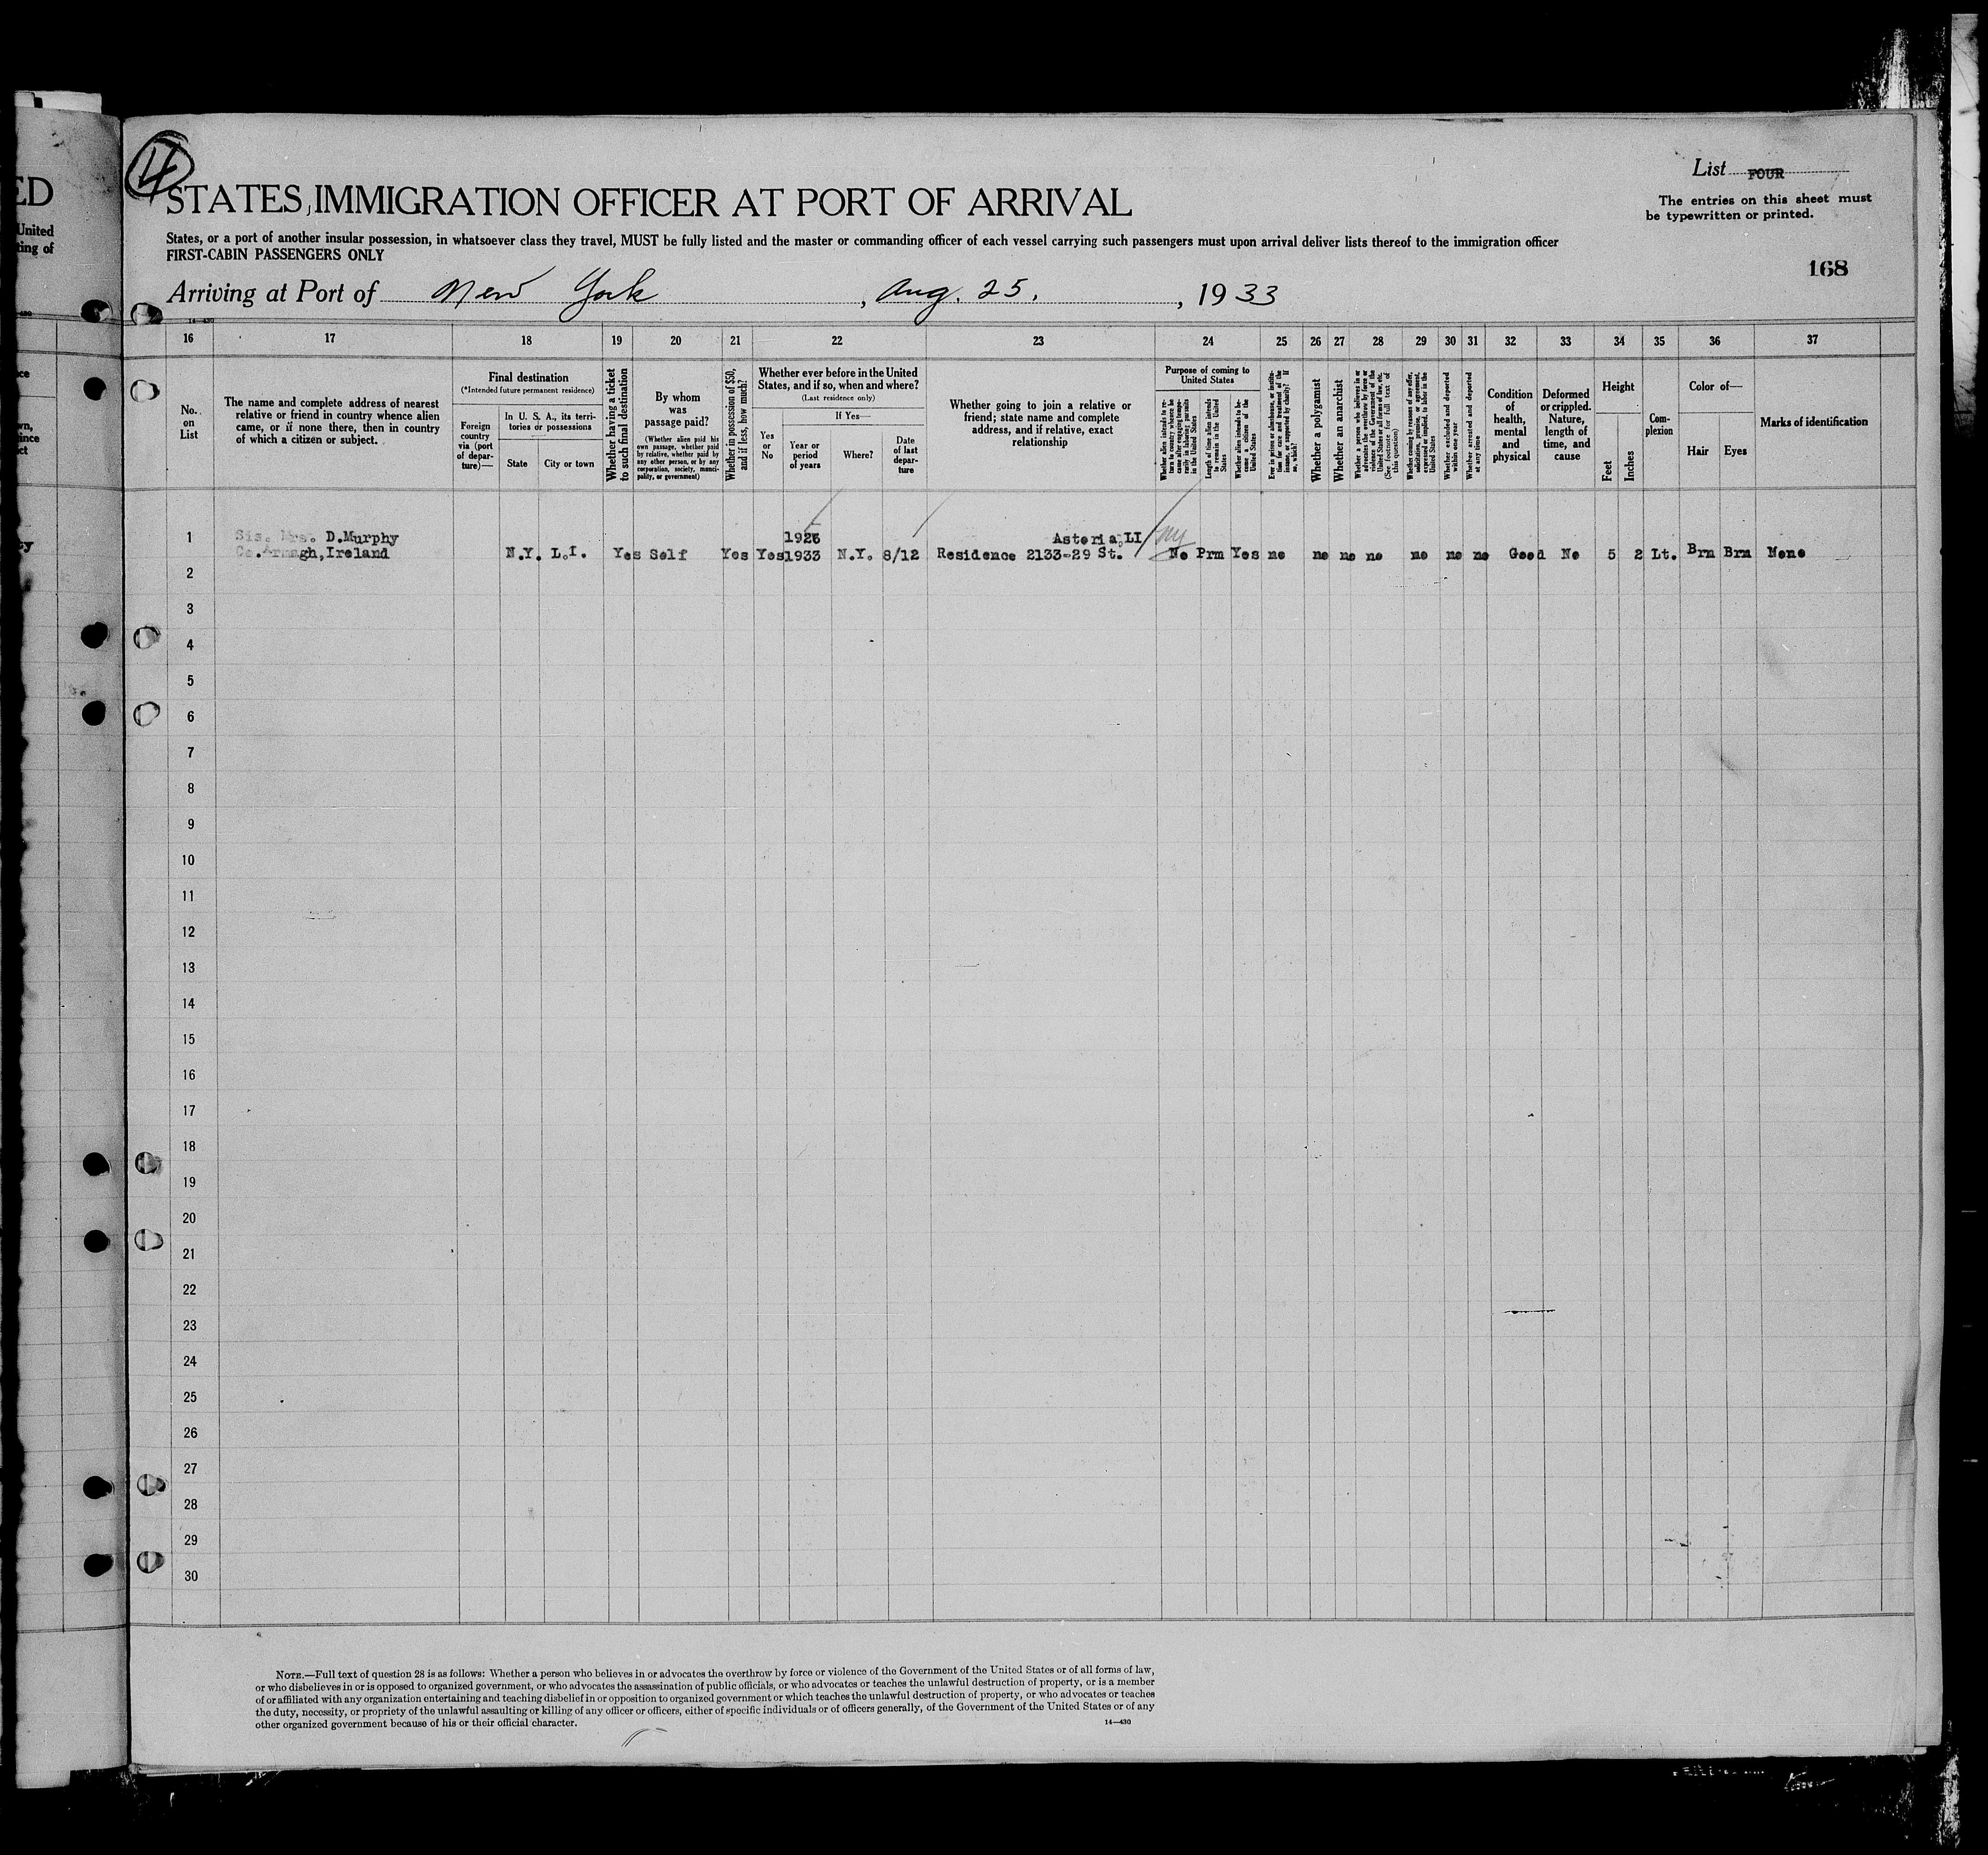 ED
United
ting of
4
STATES, IMMIGRATION OFFICER AT PORT OF ARRIVAL
List FOUR
The entries on this sheet must
be typewritten or printed.
States, or a port of another insular possession, in whatsoever class they travel, MUST be fully listed and the master or commanding officer of each vessel carrying such passengers must upon arrival deliver lists thereof to the immigration officer
FIRST-CABIN PASSENGERS ONLY
168
Arriving at Port of New York, Aug. 25, 1933
14—430
16 17 18 19 20 21 22 23 24 25 26 27 28 29 30 31 32 33 34 35 36 37
No. on List
The name and complete address of nearest
relative or friend in country whence alien
came, or if none there, then in country
of which a citizen or subject.
Final destination
(*Intended future permanent residence)
Foreign country via (port of departure)—
In U. S. A., its territories or possessions
State
City or town
Whether having a ticket to such final destination
By whom was passage paid?
(Whether alien paid his own passage, whether paid by relative, whether paid by any other person, or by any corporation, society, municipality, or government)
Whether in possession of $50, and if less, how much?
Whether ever before in the United
States, and if so, when and where?
(Last residence only)
Yes or No
If Yes—
Year or period of years
Where?
Date of last departure
Whether going to join a relative or
friend; state name and complete
address, and if relative, exact
relationship
Purpose of coming to United States
Whether alien intends to return to country whence he came after engaging temporarily in laboring pursuits in the United States
Length of time alien intends to remain in the United States
Whether alien intends to become a citizen of the United States
Ever in prison or almshouse, or institution for care and treatment of the insane, or supported by charity? If so, which?
Whether a polygamist
Whether an anarchist
Whether a person who believes in or advocates the overthrow by force or violence of the Government of the United States or all forms of law, etc. (See footnote for full text of this question)
Whether coming by reasons of any offer, solicitation, promise, or agreement, expressed or implied, to labor in the United States
Whether excluded and deported within one year
Whether arrested and deported at any time
Condition of health, mental and physical
Deformed or crippled. Nature, length of time, and cause
Height
Feet
Inches
Complexion
Color of—
Hair
Eyes
Marks of identification
1 Sis. Mrs. D.Murphy 1926 Astoria, LI
Co. Armagh, Ireland N.Y. L.I. Yes Self Yes Yes 1933 N.Y. 8/12 Residence 2133-29 St. No Prm Yes no no no no no no no Good No 5 2 Lt. Brn Brn None
2
3
4
5
6
7
8
9
10
11
12
13
14
15
16
17
18
19
20
21
22
23
24
25
26
27
28
29
30
NOTE.—Full text of question 28 is as follows: Whether a person who believes in or advocates the overthrow by force or violence of the Government of the United States or of all forms of law,
or who disbelieves in or is opposed to organized government, or who advocates the assassination of public officials, or who advocates or teaches the unlawful destruction of property, or is a member
of or affiliated with any organization entertaining and teaching disbelief in or opposition to organized government or which teaches the unlawful destruction of property, or who advocates or teaches
the duty, necessity, or propriety of the unlawful assaulting or killing of any officer or officers, either of specific individuals or of officers generally, of the Government of the United States or of any
other organized government because of his or their official character.
14—430